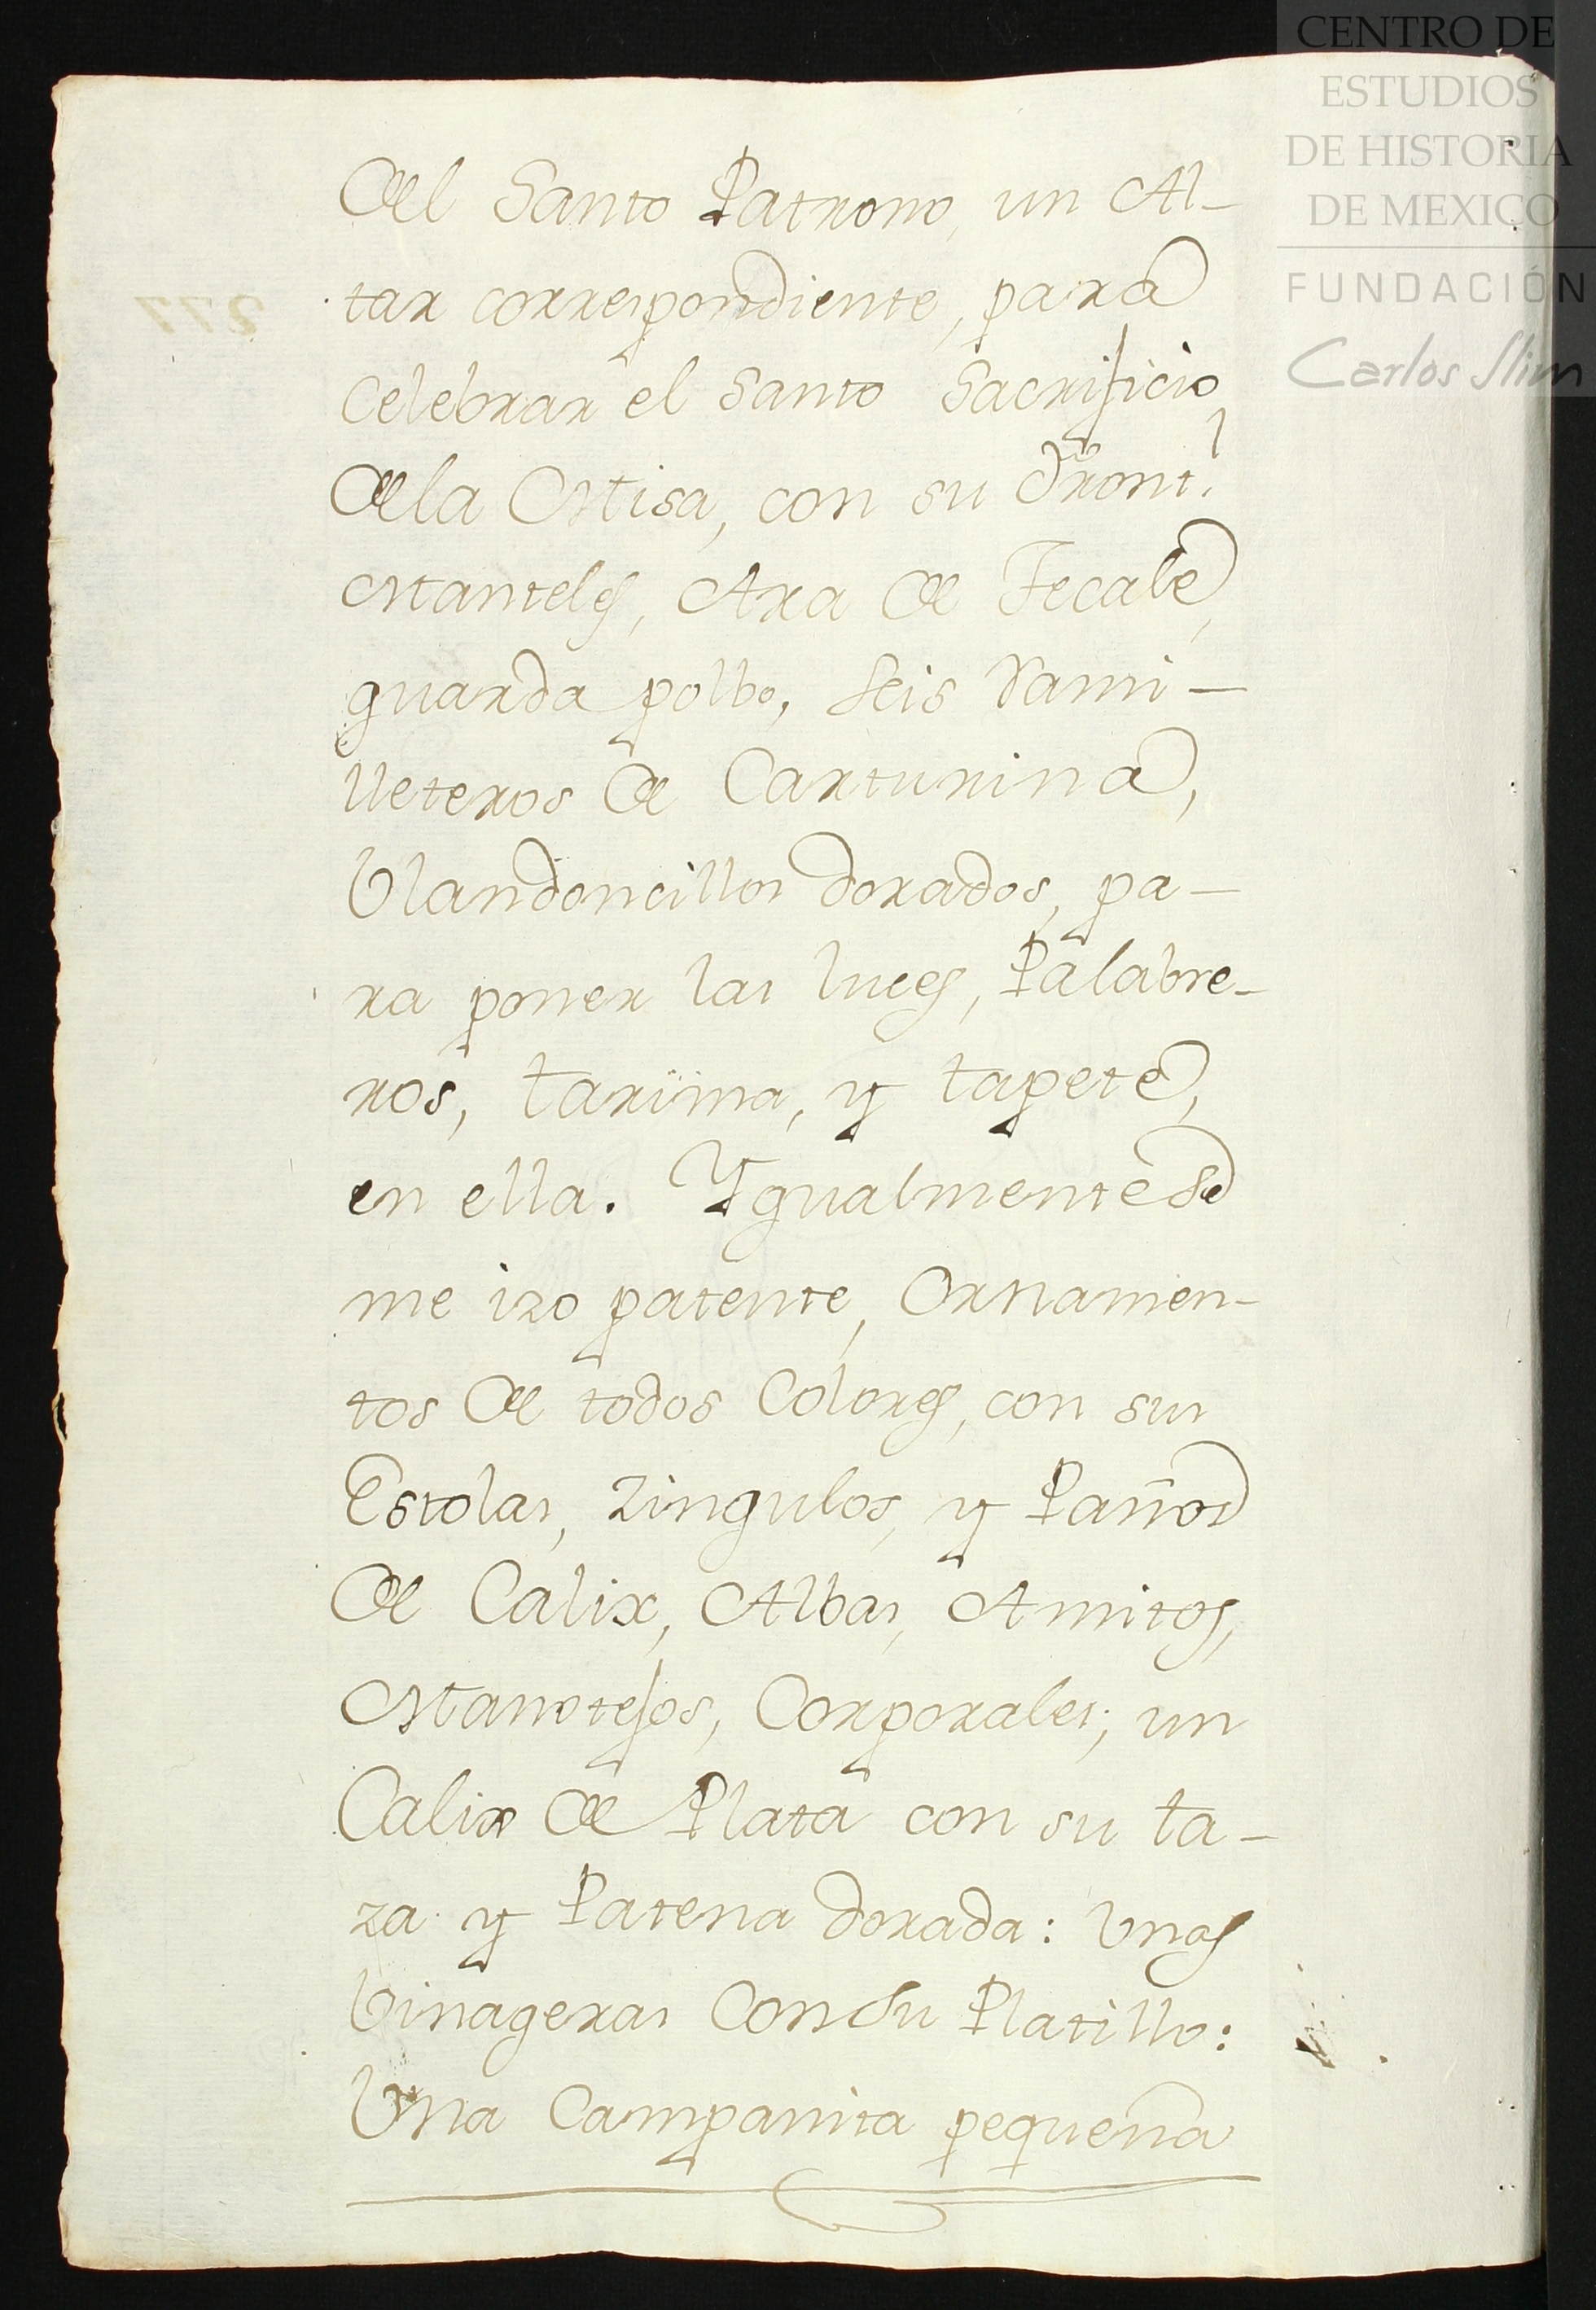 CENTRO DE
ESTUDIOS
DE HISTORIA
DE MEXICO
FUNDACIÓN
Carlos Slim
del Santo Patrono, un Al-
tar correspondiente, para
Celebrar el Santo Sacrificio
dela Misa, con su Front.l
Manteles, Ara de Tecale,
guarda polbo, seis Rami-
lleteros de Carturina,
Vlandoncillos dorados, pa-
ra poner las luces, Palabre-
ros, tarima, y tapete,
en ella. Ygualmente se
me izo patente, Ornamen-
tos de todos Colores, con sus
Estolas, Zingulos, y Paños
de Calix, Albas, Amitos,
Manotejos, Corporales; un
Calix de Plata con su ta-
za y Patena dorada: Unas
Vinageras Con su Platillo:
Una Campanita pequeña